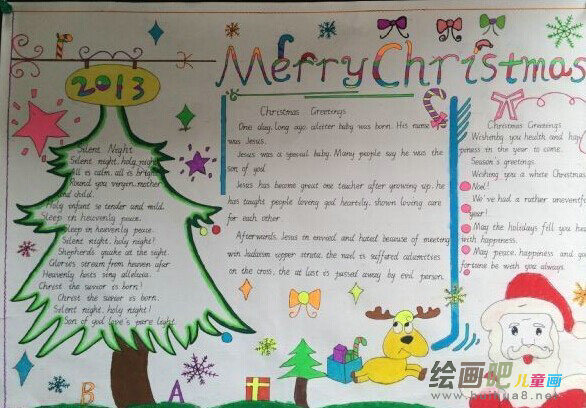 Merry Christmas
2013
Silent Night
Silent night, holy night
All is calm, all is bright
Round you virgin, mother
and child.
Holy infant so tender and mild.
Sleep in heavenly peace.
Sleep in heavenly peace.
Silent night, holy night!
Shepherds quake at the sight.
Glories stream from heaven afar
Heavenly hosts sing alleluia.
Christ the savior is born!
Christ the savior is born.
Silent night, holy night!
Son of god love's pure light.
B A
Christmas Greetings
One day, long ago, a baby was born. His name
was Jesus.
Jesus was a special baby. Many people say he was the
son of god.
Jesus has become great one teacher after growing up, he
has taught people loving god heartily, shown loving care
for each other.
Afterwards, Jesus is envied and hated because of meeting
with Judaism upper strata, the nail is suffered calamities
on the cross, the at last is passed away by evil person.
Christmas Greetings
Wishing you health and hap-
piness in the year to come.
Season's greetings.
Wishing you a white Christmas
Noel!
We've had a rather uneventful
year!
May the holidays fell you hea
with happiness.
May peace, happiness and go
fortune be with you always.
绘画吧儿童画
www.huihua8.net